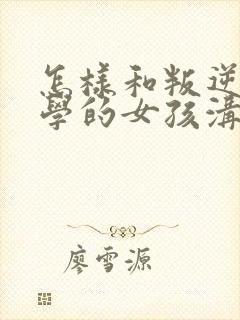 怎樣和叛逆
學的女孩溝
廖雪源